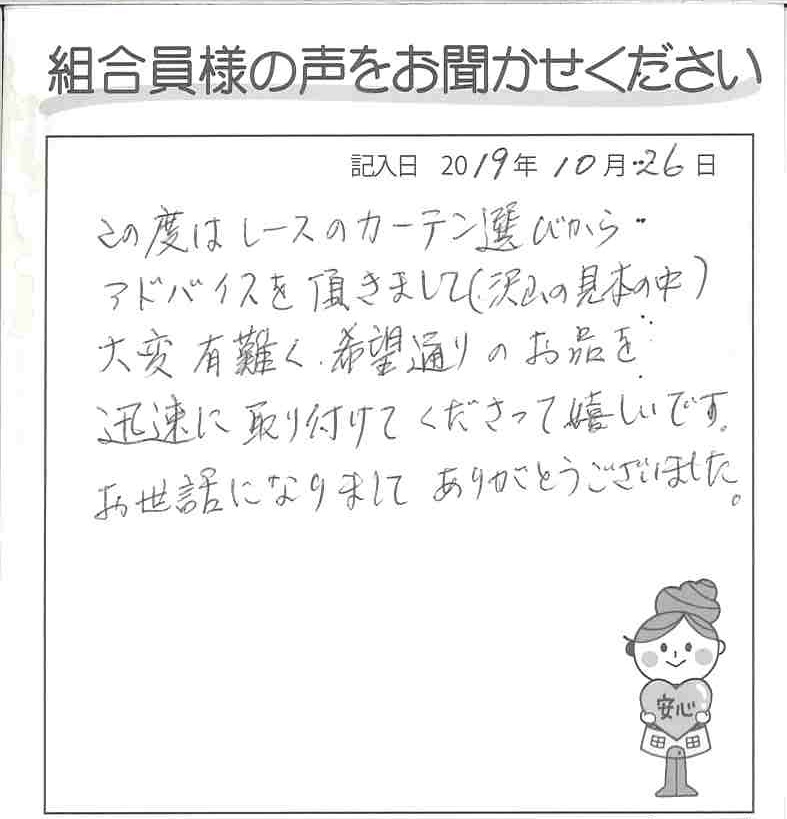 組合員様の声をお聞かせください
記入日 2019年 10月 26日
この度はレースのカーテン選びから
アドバイスを頂きまして(沢山の見本の中)
大変有難く、希望通りのお品を
迅速に取り付けてくださって嬉しいです。
お世話になりまして ありがとうございました。
安心